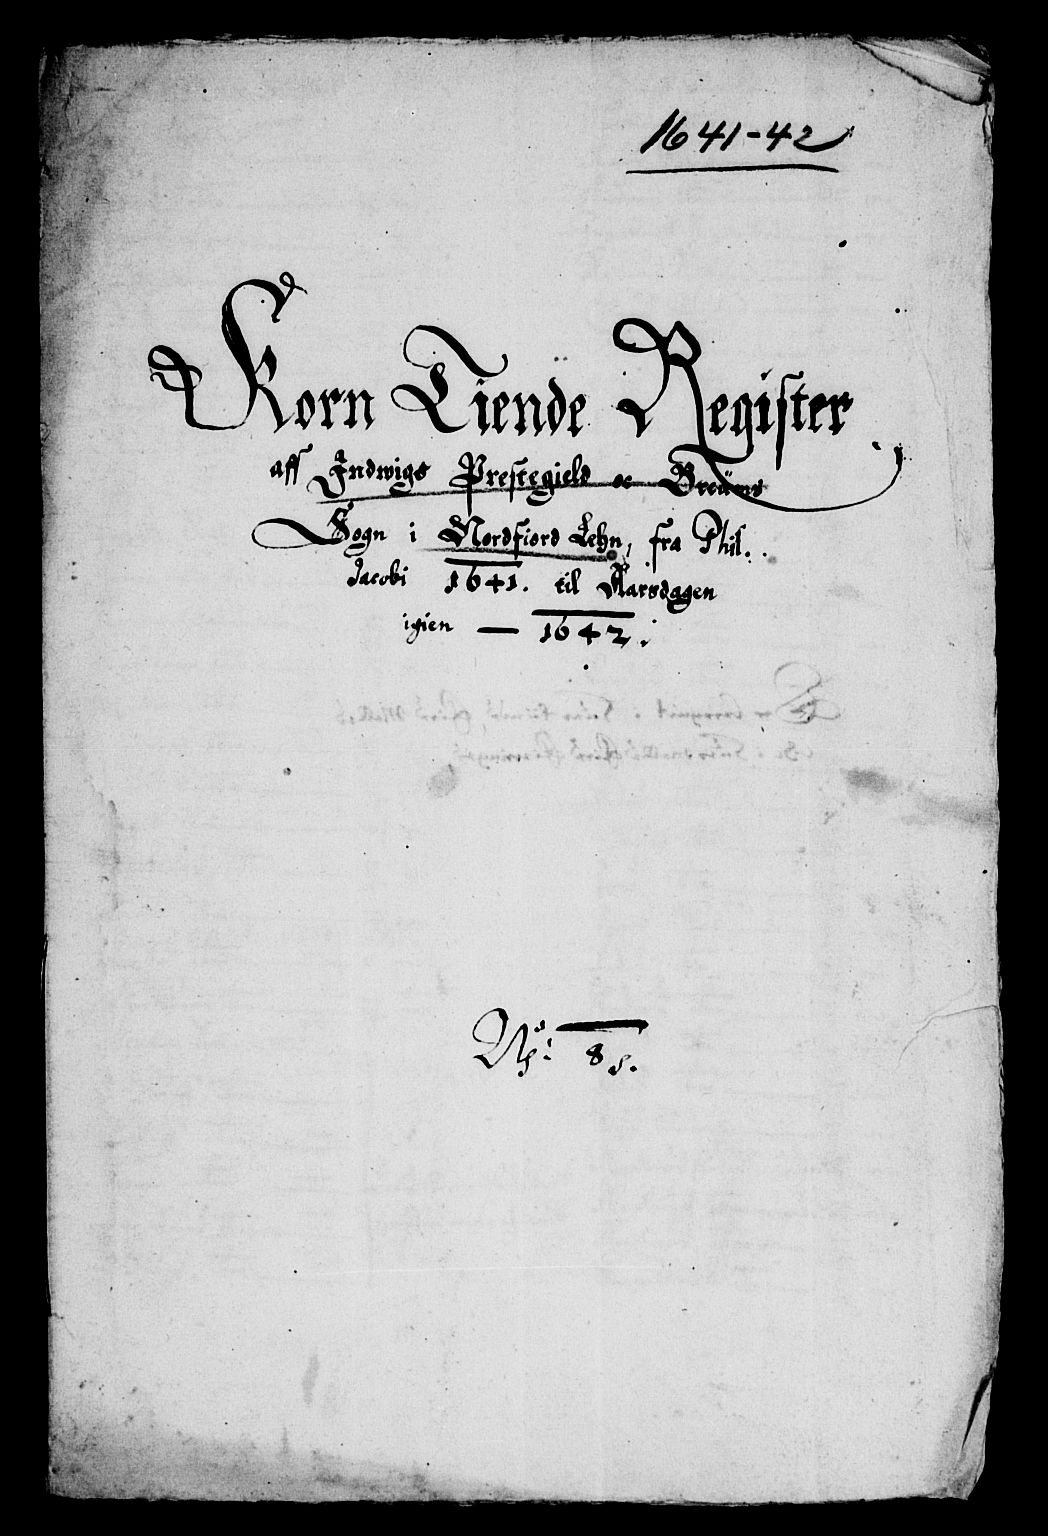 1641-42
Korn Tiende Register
aff Indwigs Prestegield oc Breums
Sogn i Nordfiord Lehn, fra Phil.
Jacobi 1641. til Aarsdagen
igien — 1642.